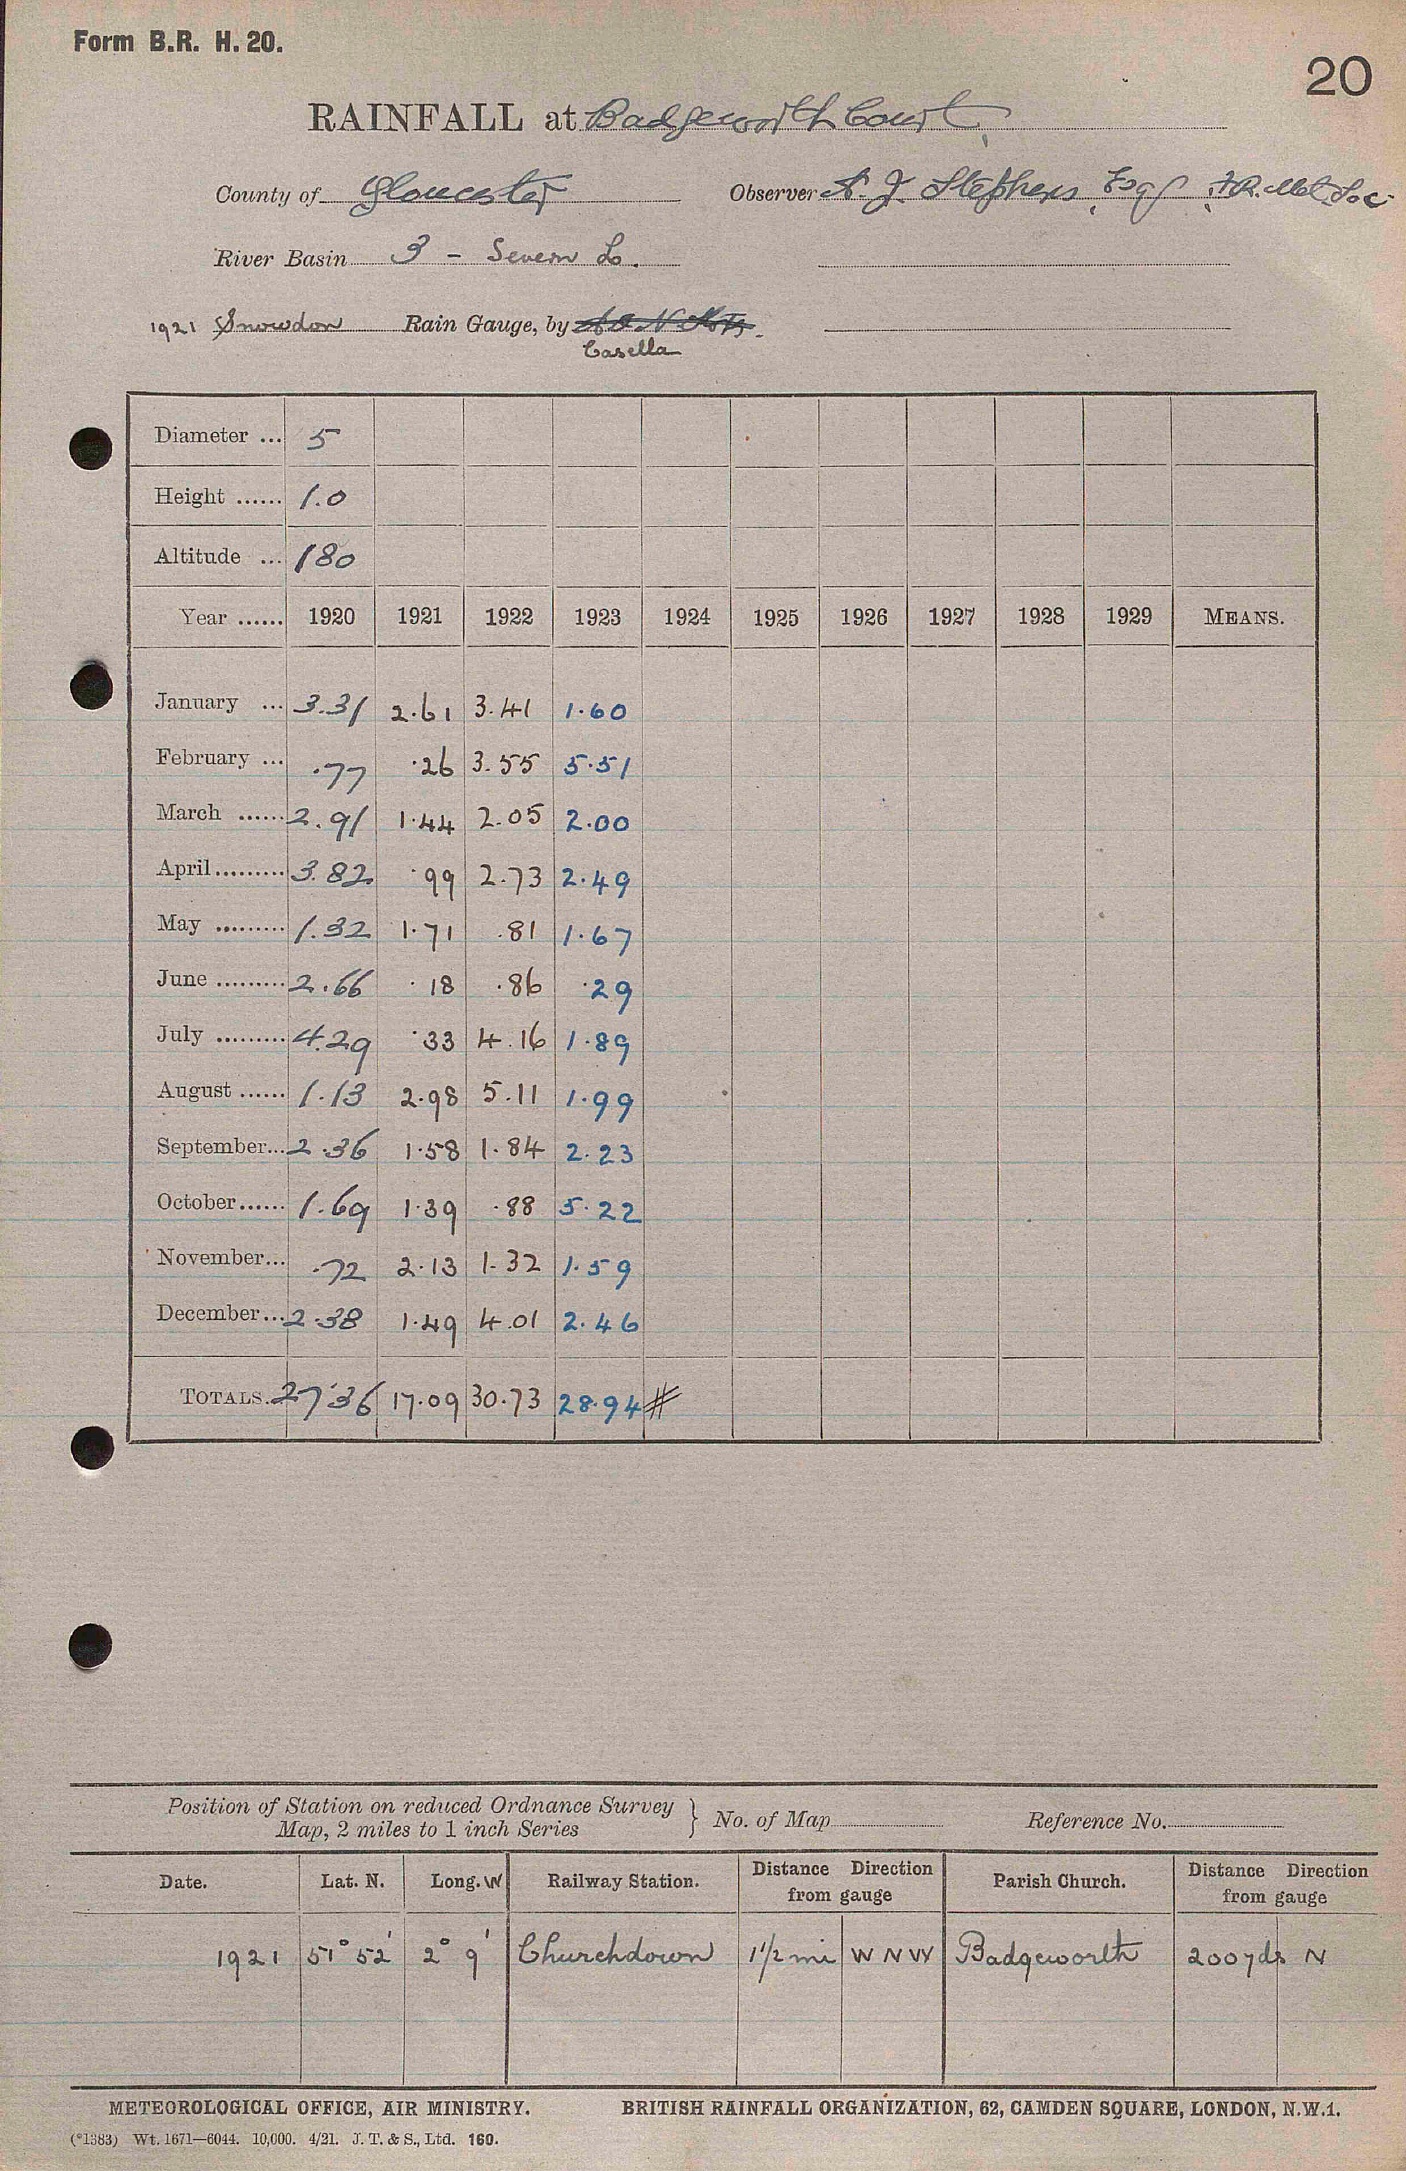 Form B.R. H. 20.
20
RAINFALL at Badgeworth Court
County of Gloucester Observer A. J. Stephens, Esq., F.R.Met.Soc.
River Basin 3 - Severn L.
1921 Snowdon Rain Gauge, by
Casella
Diameter ... 5
Height ...... 1.0
Altitude ... 180
Year ...... 1920 1921 1922 1923 1924 1925 1926 1927 1928 1929 MEANS.
January ... 3.31 2.61 3.41 1.60
February ... .77 .26 3.55 5.51
March ...... 2.91 1.44 2.05 2.00
April ......... 3.82 .99 2.73 2.49
May ......... 1.32 1.71 .81 1.67
June ......... 2.66 .18 .86 .29
July ......... 4.29 .33 4.16 1.89
August ...... 1.13 2.98 5.11 1.99
September... 2.36 1.58 1.84 2.23
October...... 1.69 1.39 .88 5.22
November... .72 2.13 1.32 1.59
December... 2.38 1.49 4.01 2.46
TOTALS. 27.36 17.09 30.73 28.94 #
Position of Station on reduced Ordnance Survey
Map, 2 miles to 1 inch Series } No. of Map Reference No.
Date. Lat. N. Long. W Railway Station. Distance Direction from gauge Parish Church. Distance Direction from gauge
1921 51° 52' 2° 9' Churchdown 1 1/2 mi W N W Badgeworth 200 yds N
METEOROLOGICAL OFFICE, AIR MINISTRY. BRITISH RAINFALL ORGANIZATION, 62, CAMDEN SQUARE, LONDON, N.W.1.
(*1383) Wt. 1671—6044. 10,000. 4/21. J. T. & S., Ltd. 160.